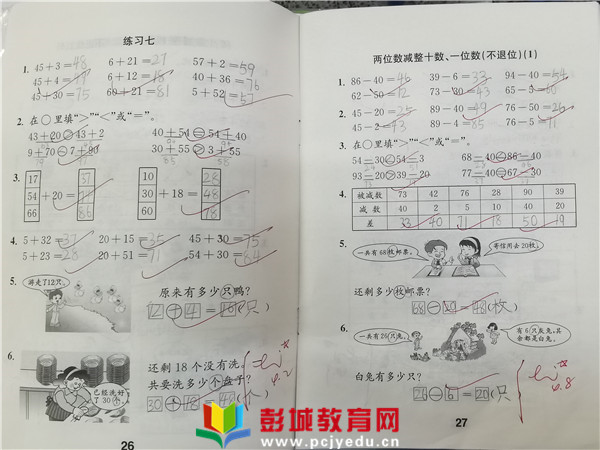 练习七
1. 45+3=48 6+21=27 57+2=59
45+4=49 6+12=18 40+36=76
45+30=75 60+21=81 5+52=57
2. 在○里填“>”“<”或“=”。
43+20>43+2 40+54=54+40
9+70=7+90 30+55>3+55
3.
17 37 10 28
54 +20= 74 30 +18= 48
66 86 60 78
4. 5+32=37 20+15=35 45+30=75
5+23=28 20+51=71 54+30=84
5.
游走了12只。
原来有多少只鸭?
(只)
6.
已经洗好了30个。
还剩18个没有洗。
共要洗多少个盘子?
30+18=48(个)
4.2
26
两位数减整十数、一位数(不退位)(1)
1. 86-40=46 39-6=33 94-40=54
62-50=12 73-30=43 65-5=60
2. 45-20=25 89-40=49 76-50=26
45-2=43 89-4=85 76-5=71
3. 在○里填“>”“<”或“=”。
54-30<54-3 68-40 86-40
93-20 39-20 77-40 67-30
4.
被减数 73 42 76 28 90 39
减数 40 2 5 10 40 20
差 33 40 71 18 50 19
5.
一共有68枚邮票。
寄信用去20枚。
还剩多少枚邮票?
68-20=48(枚)
6.
一共有26只兔。
有6只灰兔,其余都是白兔。
白兔有多少只?
26-6=20(只
4.8
27
彭城教育网
www.pcjyedu.cn